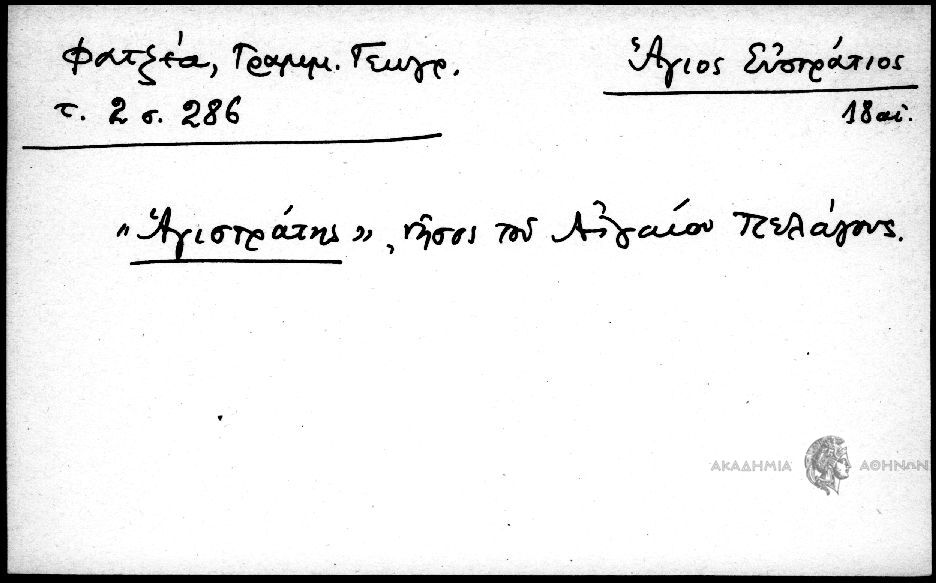 Φατζέα, Γραμμ. Γεωγρ.
τ. 2 σ. 286
Ἅγιος Εὐστράτιος
18 αἰ.
"Ἁγιστράτης", νῆσος τοῦ Αἰγαίου Πελάγους.
ΑΚΑΔΗΜΙΑ ΑΘΗΝΩΝ